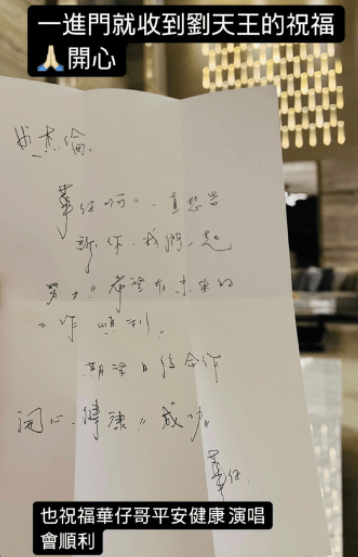 一進門就收到劉天王的祝福
🙏🏻開心
杰倫.
華仔啊!! 一直想告
訴你.我們一起
努力!! 希望在未來的
工作順利.
期望日後合作
開心.健康!! 成功!!
華仔.
也祝福華仔哥平安健康 演唱
會順利